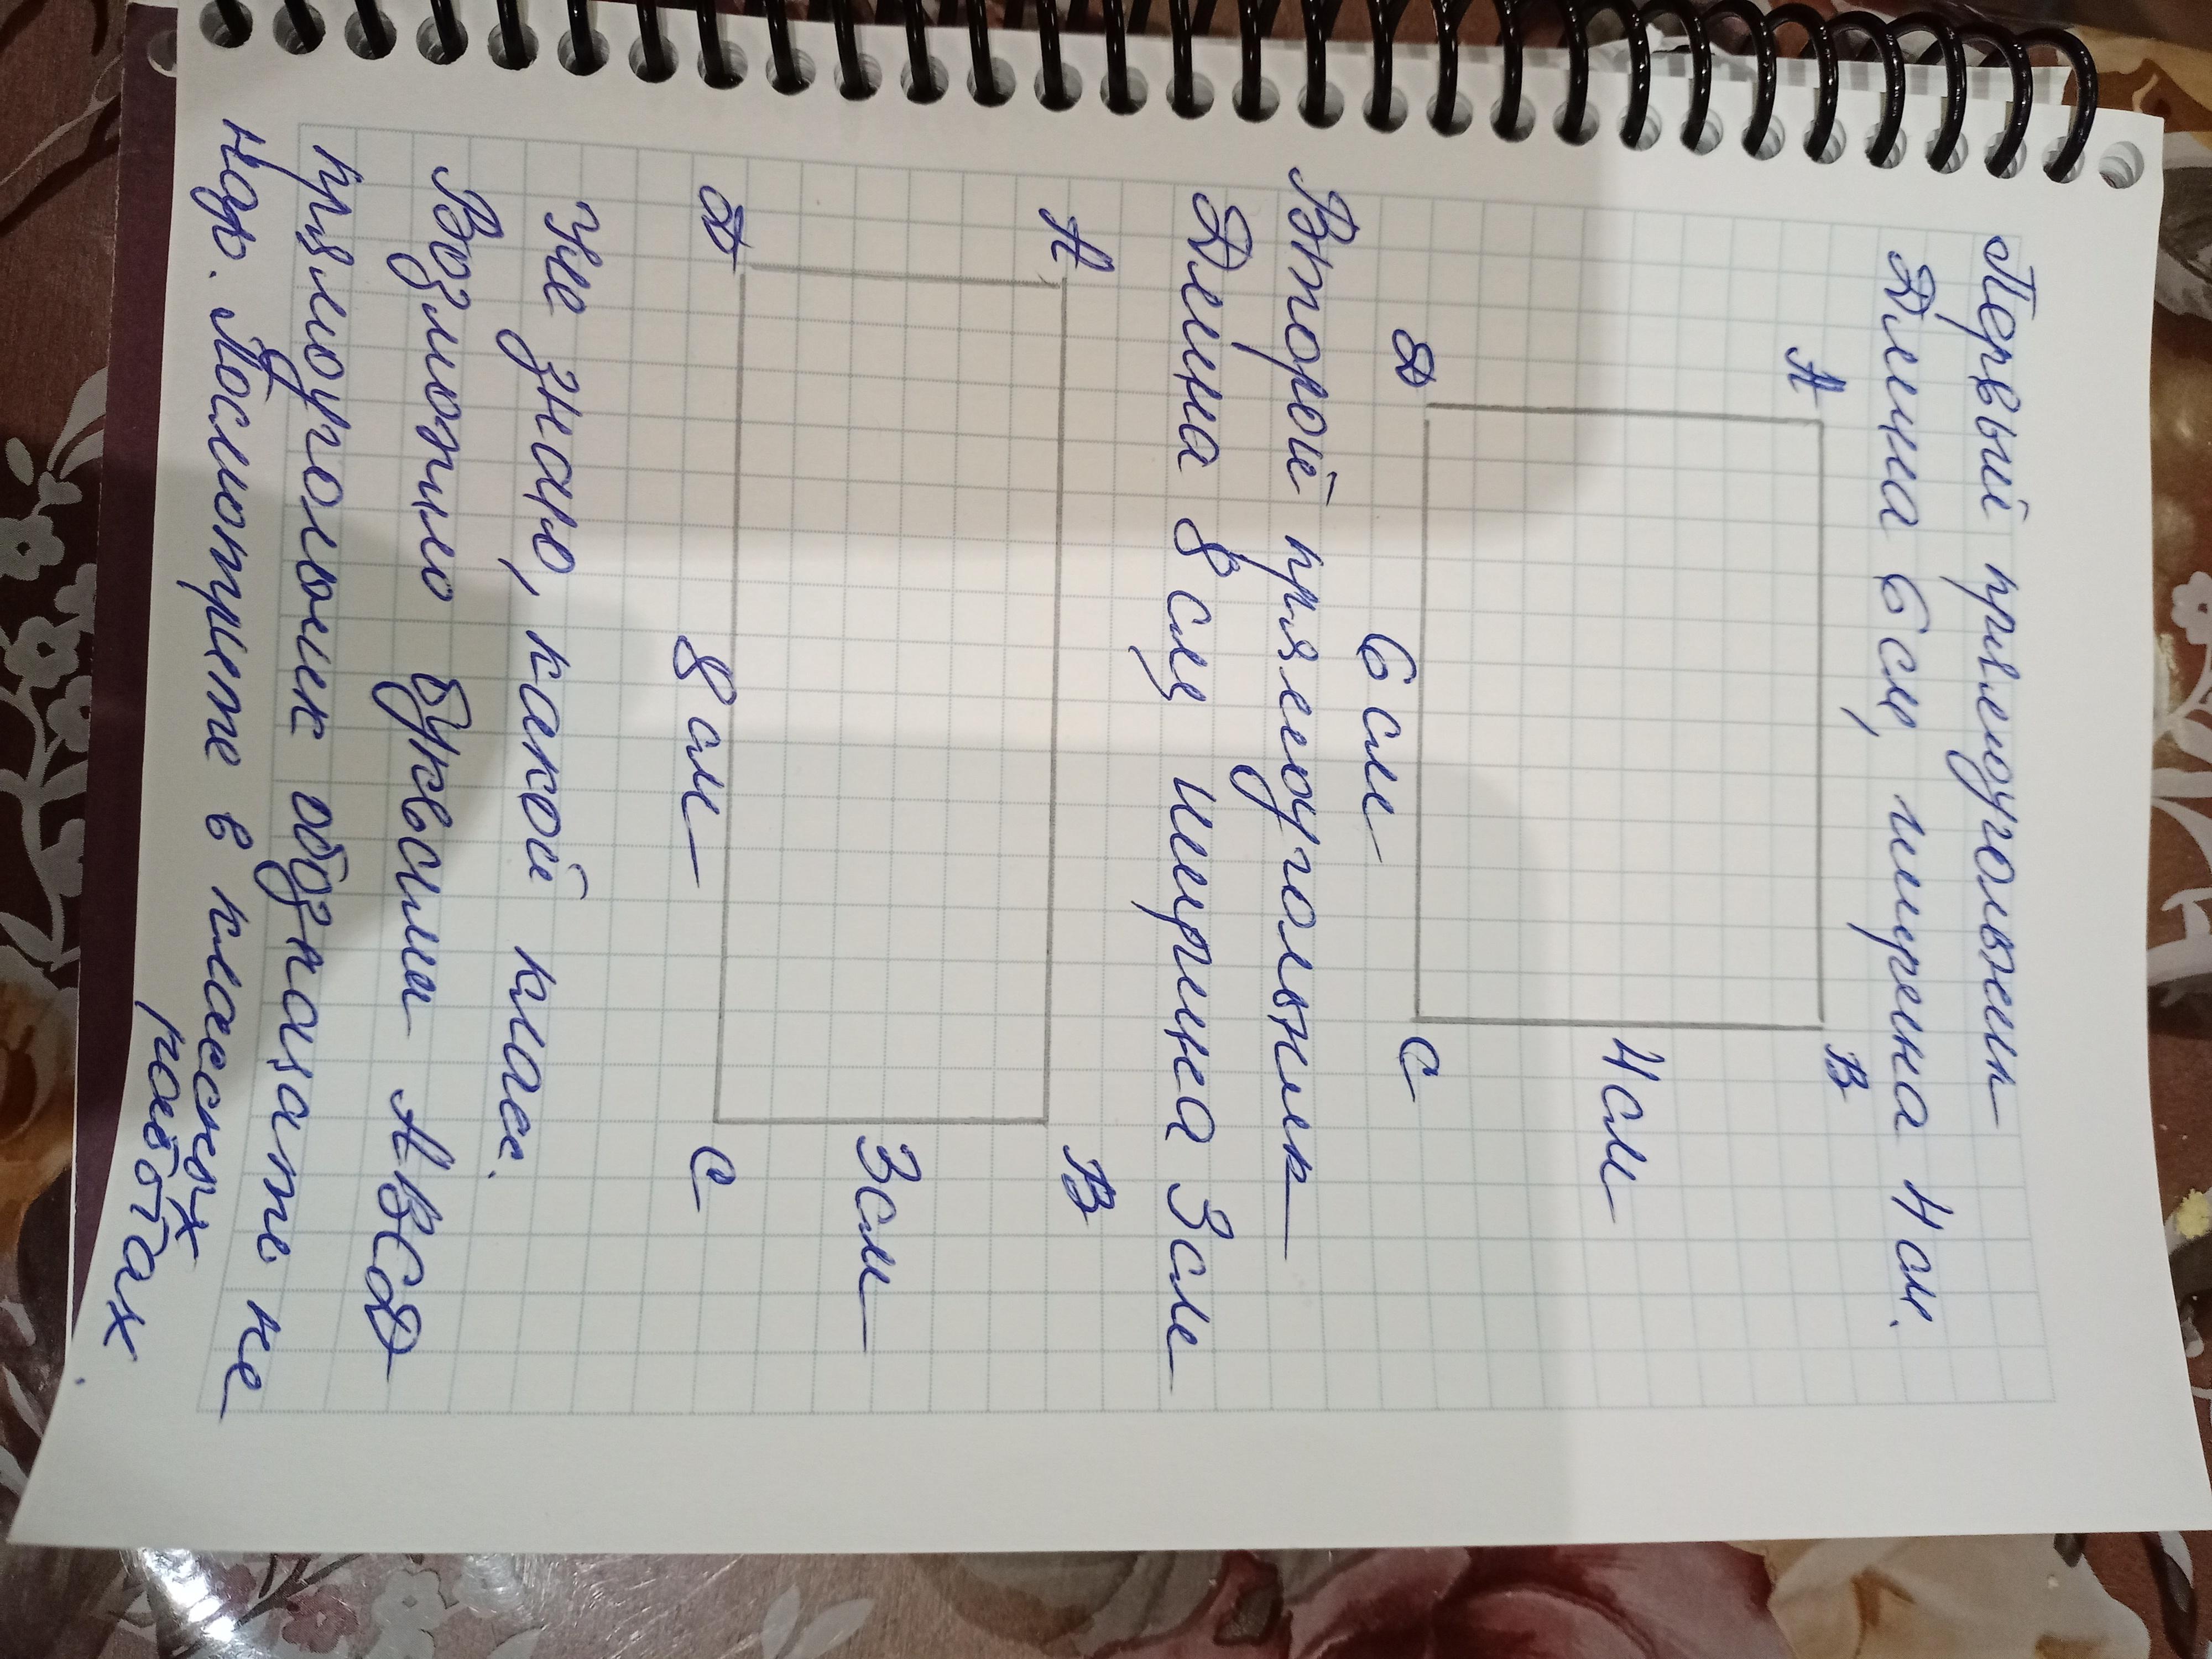 Первый прямоугольник
Длина 6 см, ширина 4 см.
А В
4 см
Д С
6 см
Второй прямоугольник
Длина 8 см, ширина 3 см
А В
3 см
Д С
8 см
Не знаю, какой класс.
Возможно буквами АВСД
прямоугольник обозначать не
надо. Посмотрите в классных
работах